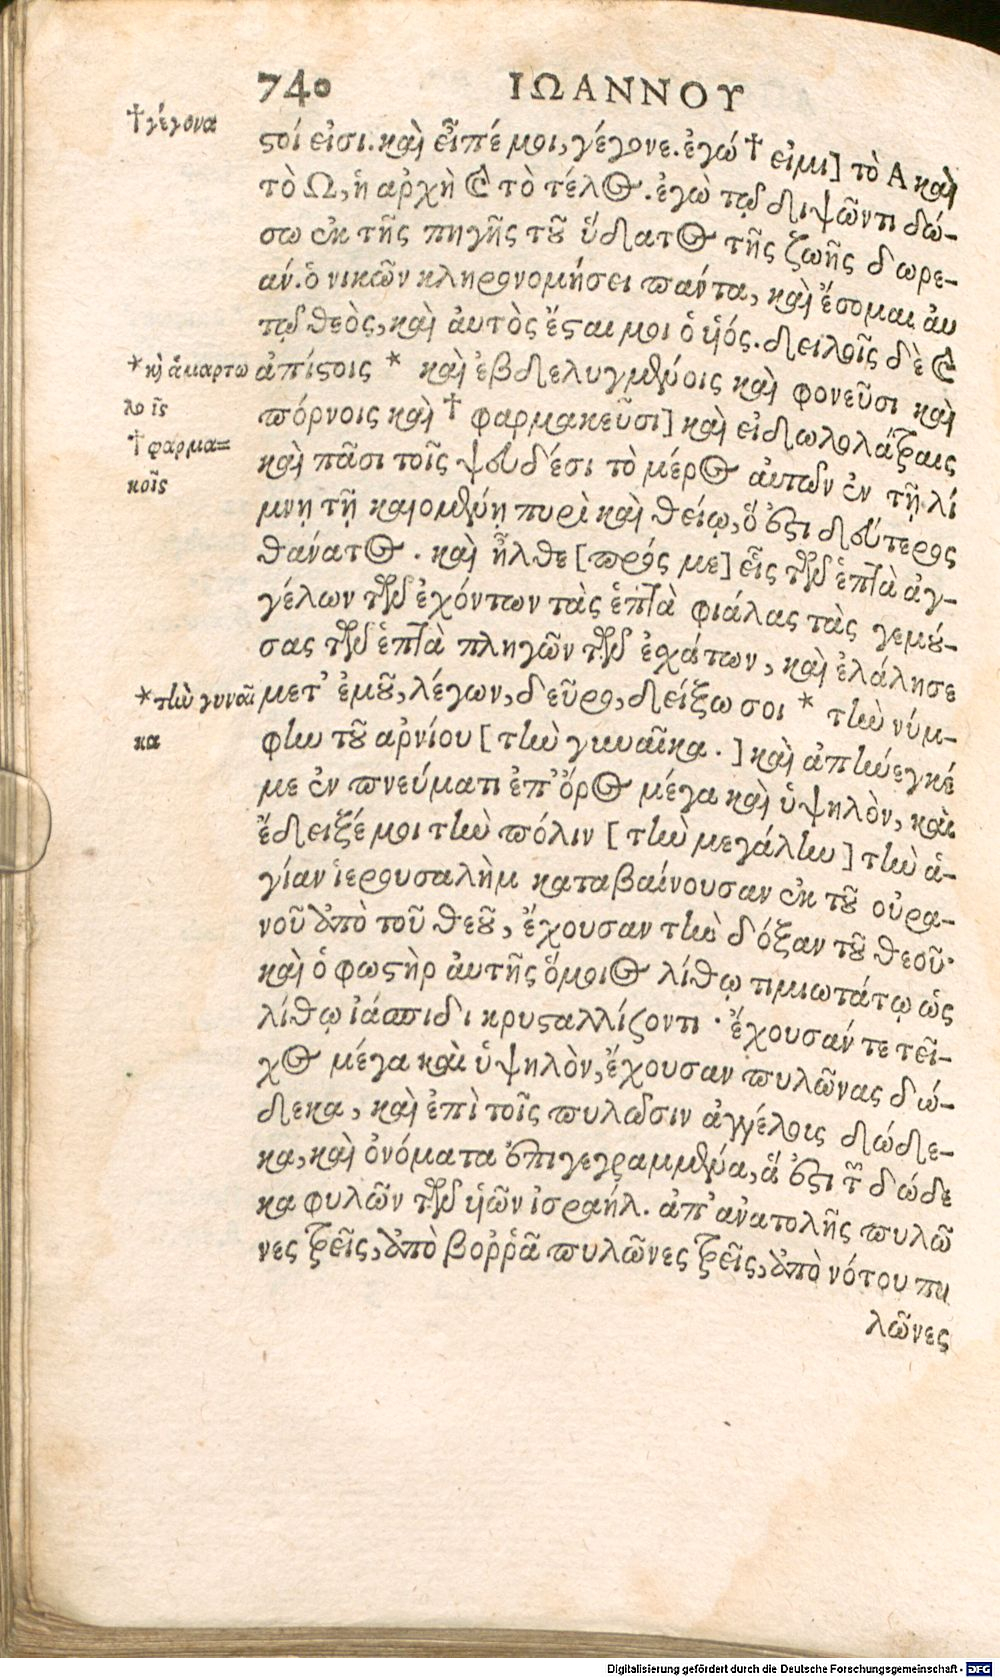 740 ΙΩΑΝΝΟΥ
† γέγονα
ϛοί εἰσι. καὶ εἶπέ μοι, γέγονε. ἐγώ † εἰμι] τὸ Α καὶ
τὸ Ω, ἡ ἀρχὴ καὶ τὸ τέλος. ἐγὼ τῷ διψῶντι δώ-
σω ἐκ τῆς πηγῆς τοῦ ὕδατος τῆς ζωῆς δωρε-
άν. ὁ νικῶν κληρονομήσει πάντα, καὶ ἔσομαι αὐ
τῷ θεὸς, καὶ αὐτὸς ἔϛαι μοι ὁ υἱός. δειλοῖς δὲ καὶ
* κὶ ἁμαρτω
λοῖς
ἀπίϛοις * καὶ ἐβδελυγμένοις καὶ φονεῦσι καὶ
πόρνοις καὶ † φαρμακεῦσι] καὶ εἰδωλολάτραις
† φαρμα=
κοῖς
καὶ πᾶσι τοῖς ψευδέσι τὸ μέρος αὐτῶν ἐν τῇ λί
μνῃ τῇ καιομένῃ πυρὶ καὶ θείῳ, ὅ ἐϛι δεύτερος
θάνατος. καὶ ἦλθε [πρός με] εἷς τῶν ἑπτὰ ἀγ-
γέλων τῶν ἐχόντων τὰς ἑπτὰ φιάλας τὰς γεμού-
σας τῶν ἑπτὰ πληγῶν τῶν ἐσχάτων, καὶ ἐλάλησε
* τὴν γυναῖ
κα
μετ' ἐμοῦ, λέγων, δεῦρο, δείξω σοι * τὴν νύμ-
φην τοῦ ἀρνίου [τὴν γυναῖκα.] καὶ ἀπήνεγκέ
με ἐν πνεύματι ἐπ' ὄρος μέγα καὶ ὑψηλὸν, καὶ
ἔδειξέ μοι τὴν πόλιν [τὴν μεγάλην] τὴν ἁ-
γίαν ἱερουσαλὴμ καταβαίνουσαν ἐκ τοῦ οὐρα-
νοῦ ἀπὸ τοῦ θεοῦ, ἔχουσαν τὴν δόξαν τοῦ θεοῦ·
καὶ ὁ φωϛὴρ αὐτῆς ὅμοιος λίθῳ τιμιωτάτῳ ὡς
λίθῳ ἰάσπιδι κρυϛαλλίζοντι · ἔχουσάν τε τεῖ-
χος μέγα καὶ ὑψηλὸν, ἔχουσαν πυλῶνας δώ-
δεκα, καὶ ἐπὶ τοῖς πυλῶσιν ἀγγέλοις δώδε-
κα, καὶ ὀνόματα ἐπιγεγραμμένα, ἅ ἐϛι τῶν δώδε
κα φυλῶν τῶν υἱῶν ἰσραήλ. ἀπ' ἀνατολῆς πυλῶ
νες τρεῖς, ἀπὸ βοῤῥᾶ πυλῶνες τρεῖς, ἀπὸ νότου πυ
λῶνες
Digitalisierung gefördert durch die Deutsche Forschungsgemeinschaft - DFG